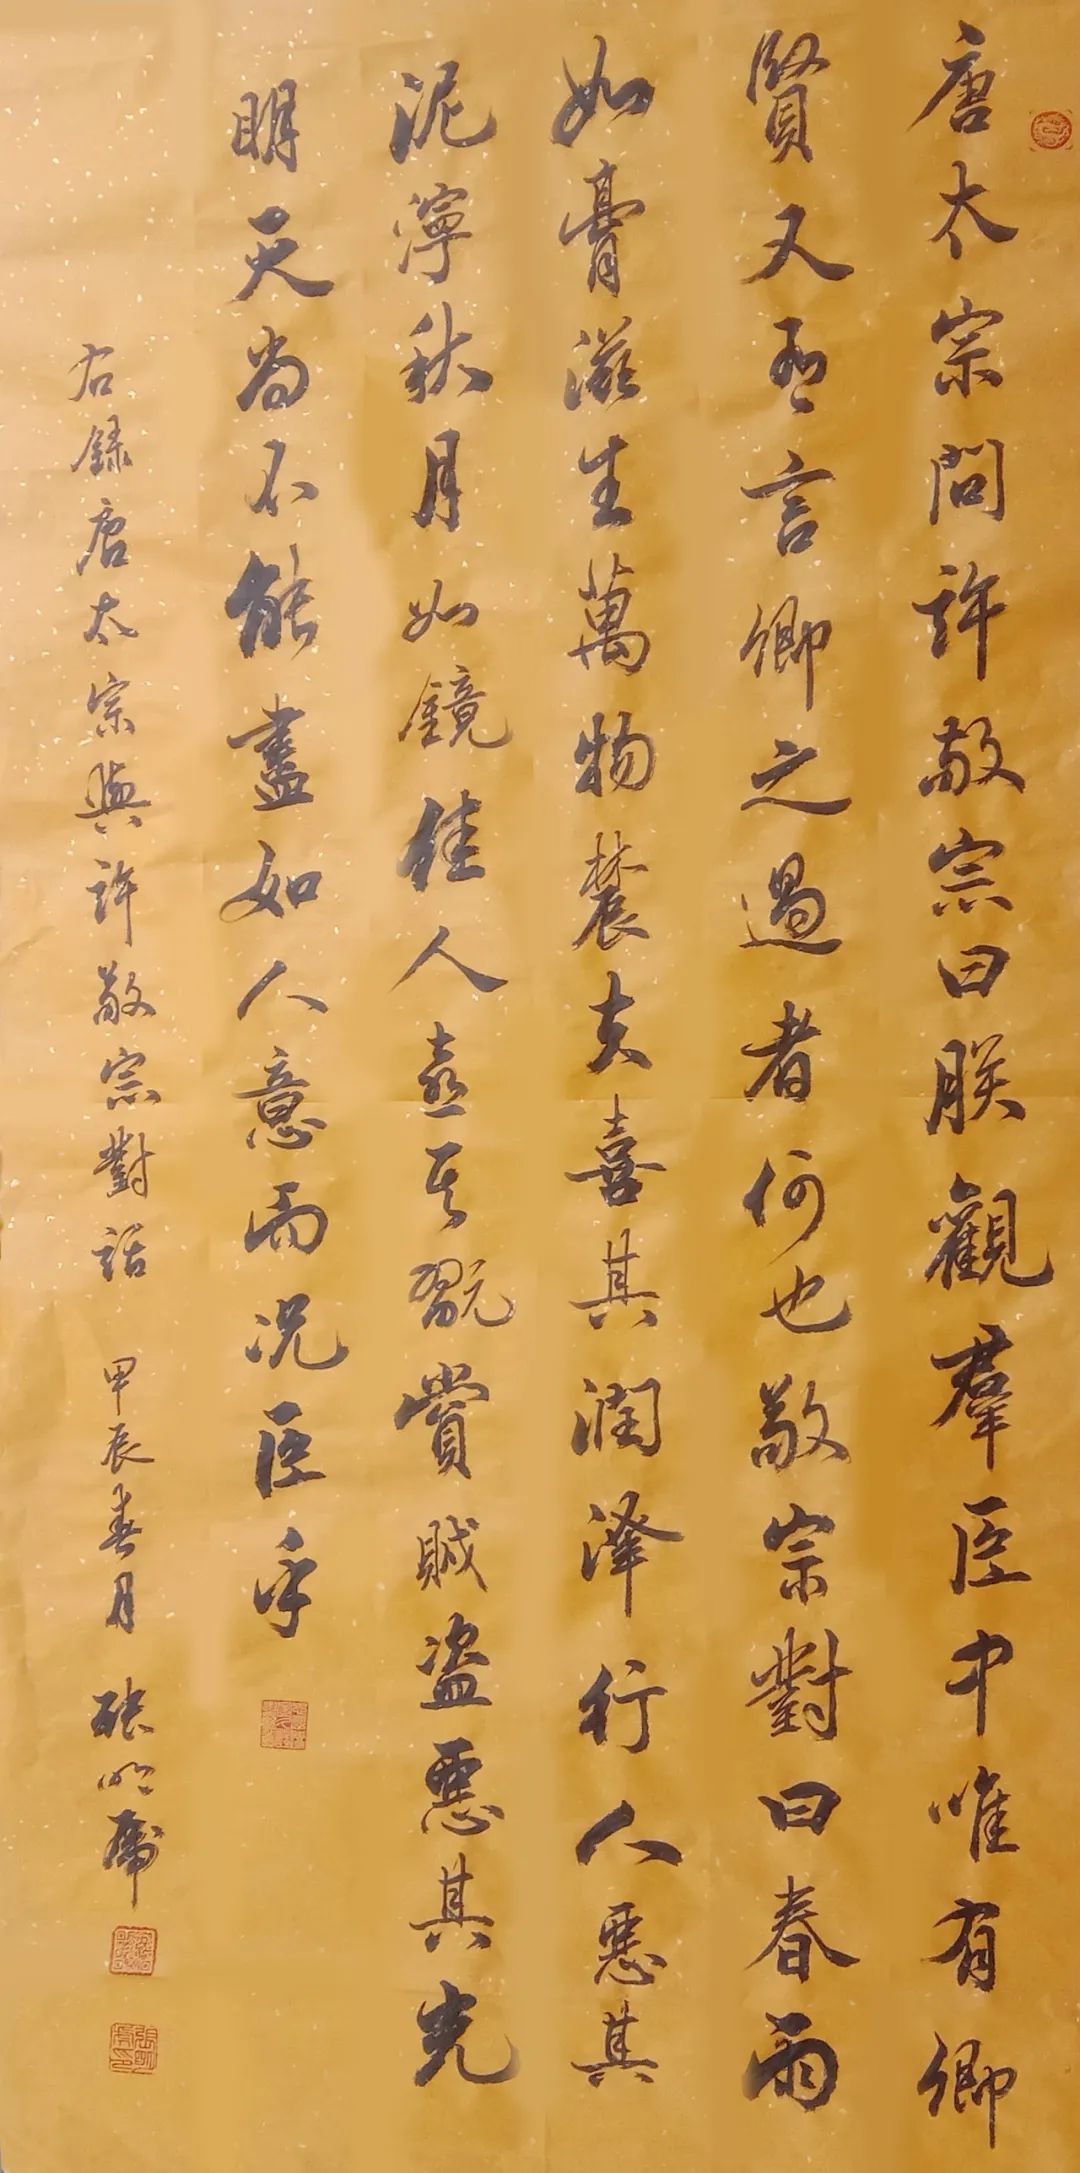 唐太宗問許敬宗曰朕觀羣臣中唯有卿
賢又有言卿之過者何也敬宗對曰春雨
如膏滋生萬物農夫喜其潤澤行人惡其
泥濘秋月如鏡佳人喜其翫賞賊盜惡其光
明天尚不能盡如人意而況臣乎
右録唐太宗與許敬宗對話 甲辰春月 張明虎